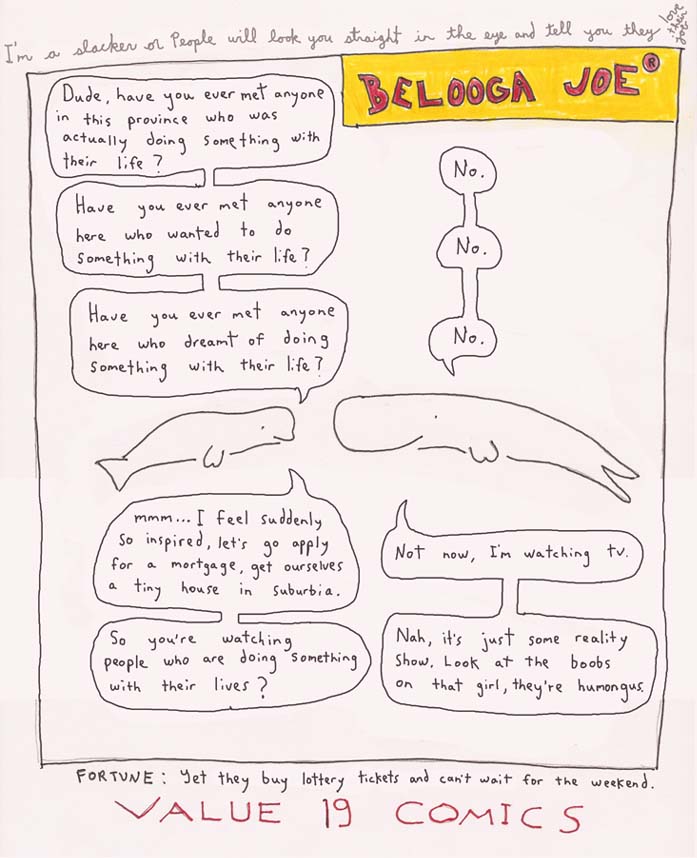 I'm a slacker or People will look you straight in the eye and tell you they love their job
BELOOGA JOE®
Dude, have you ever met anyone
in this province who was
actually doing something with
their life?
Have you ever met anyone
here who wanted to do
something with their life?
Have you ever met anyone
here who dreamt of doing
something with their life?
No.
No.
No.
mmm... I feel suddenly
so inspired, let's go apply
for a mortgage, get ourselves
a tiny house in suburbia.
Not now, I'm watching tv.
So you're watching
people who are doing something
with their lives?
Nah, it's just some reality
show. Look at the boobs
on that girl, they're humongus.
FORTUNE: Yet they buy lottery tickets and can't wait for the weekend.
VALUE 19 COMICS